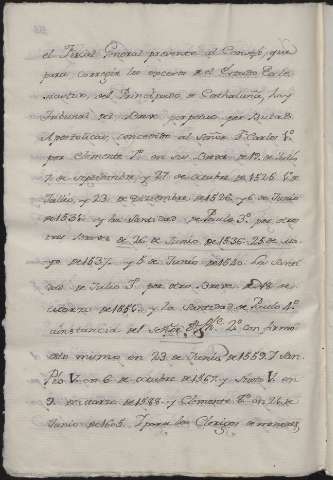 el Fiscal General presente al Consejo, que
para corregir los excesos de el Estado Ecle
siastico, del Principado de Cathaluña, hay
Tribunal del Breve perpetuo por Bulas
Apostolicas, concedido al Señor D. Carlos 1º
por Clemente 7º en sus Breves de 12 de Julio
de septiembre, y 27 de octubre de 1525. 6 de
Julio, y 23 de Diciembre de 1526. y 6 de Junio
de 1531. y la santidad de Paulo 3º por otros
tres Breves de 26 de Junio de 1536. 25 de Ma
yo de 1537. y 5 de Junio de 1540. La Santi
dad de Julio 3º por otro Breve de
de 1551. y la Santidad de Paulo 4º
à instancia del Señor Phe. 2º confirmó
lo mismo en 23 de Junio de 1559. Y San
Pio V. en 6 de octubre de 1567. y Sixto V. en
9 de marzo de 1588. y Clemente 8º en 26 de
Junio de 1605. Y para los Clerigos de menores